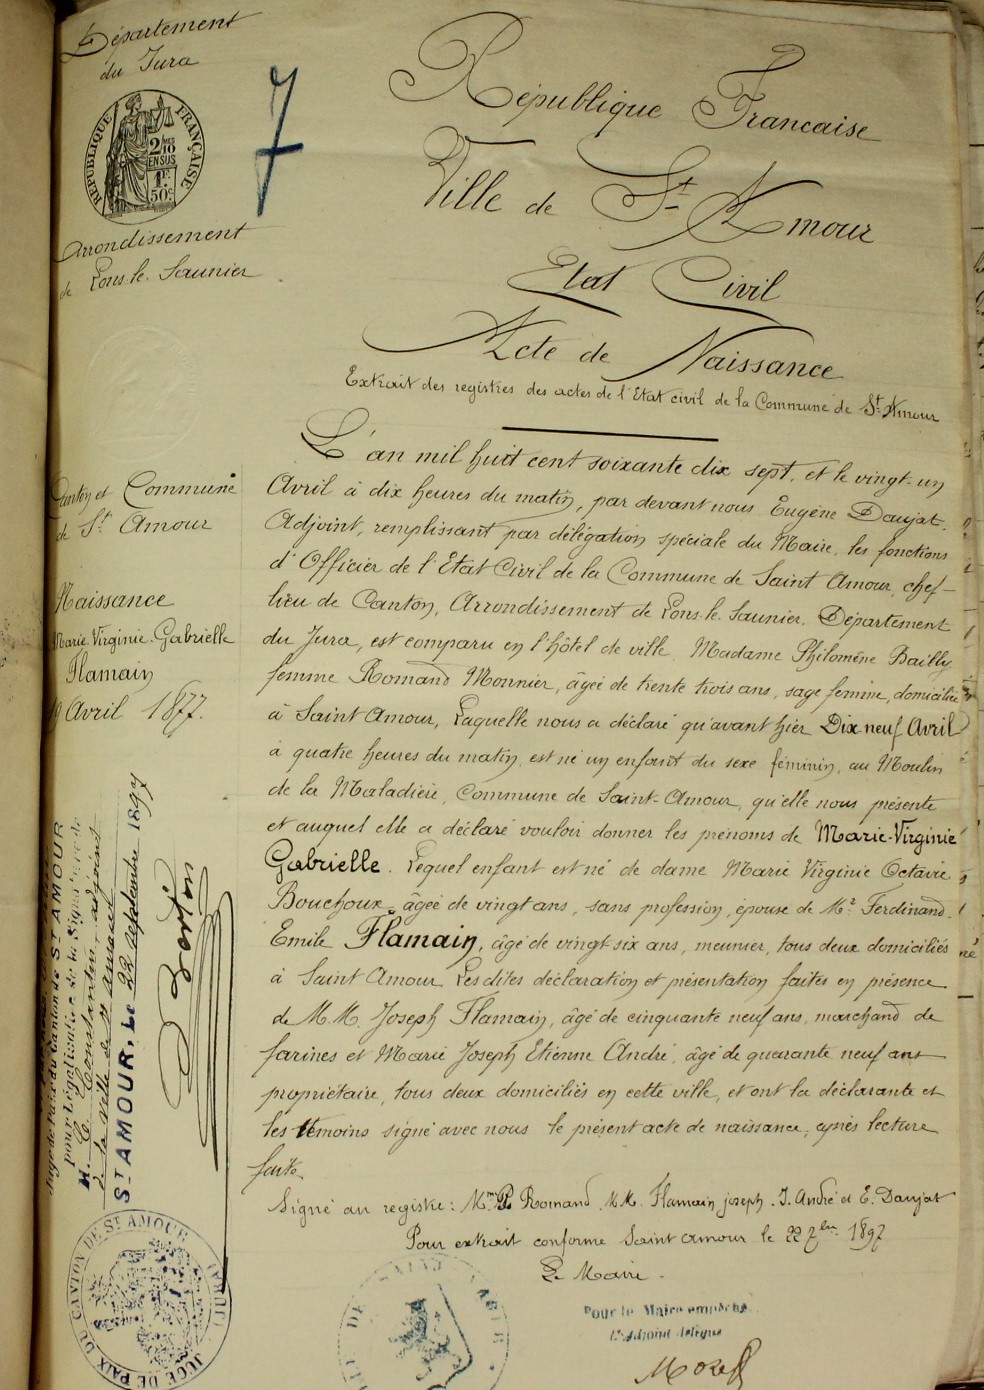 Département
du Jura
RÉPUBLIQUE FRANÇAISE
2/10
EN SUS
1F
50c
7
Arrondissement
de Lons-le-Saunier
République Francaise
Ville de St Amour
Etat Civil
Acte de Naissance
Extrait des registres des actes de l'Etat civil de la Commune de St-Amour
Canton et Commune
de St Amour
Naissance
Marie-Virginie-Gabrielle
Flamain
19 Avril 1877.
L'an mil huit cent soixante dix sept, et le vingt-un
Avril à dix heures du matin, par devant nous Eugène Daujat,
Adjoint, remplissant par délégation spéciale du Maire, les fonctions
d'Officier de l'Etat Civil de la Commune de Saint Amour, chef-
lieu de Canton, Arrondissement de Lons-le-Saunier, Département
du Jura, est comparu en l'hôtel de ville, Madame Philomène Bailly
femme Romand Monnier, âgée de trente trois ans, sage femme, domiciliée
à Saint Amour, Laquelle nous a déclaré qu'avant hier Dix neuf Avril
à quatre heures du matin, est né un enfant du sexe féminin, au Moulin
de la Maladière, Commune de Saint-Amour, qu'elle nous présente
et auquel elle a déclaré vouloir donner les prénoms de Marie-Virginie
Gabrielle. Lequel enfant est né de dame Marie Virginie Octavie
Bouchoux, âgée de vingt ans, sans profession, épouse de Mr Ferdinand-
Emile Flamain, âgé de vingt six ans, meunier, tous deux domiciliés
à Saint Amour Les dites déclaration et présentation faites en présence
de M.M. Joseph Flamain, âgé de cinquante neuf ans, marchand de
farines et Marie Joseph Etienne André, âgé de quarante neuf ans
propriétaire, tous deux domiciliés en cette ville, et ont la déclarante et
les témoins signé avec nous le présent acte de naissance, après lecture
faite.
Signé au registre: Mme P. Romand, M.M. Flamain joseph, J. André et E. Daujat
Pour extrait conforme Saint Amour le 22 7bre 1897
Le Maire.
Pour le Maire empêché
L'adjoint délégué
Juge de Paix du Canton de ST AMOUR
pour Légalisation de la signature de
M. C. Constantin, adjoint
de la Ville de St Amour
ST AMOUR, Le 22 septembre 1897
Berton
JUGE DE PAIX DU CANTON DE ST AMOUR (JURA)